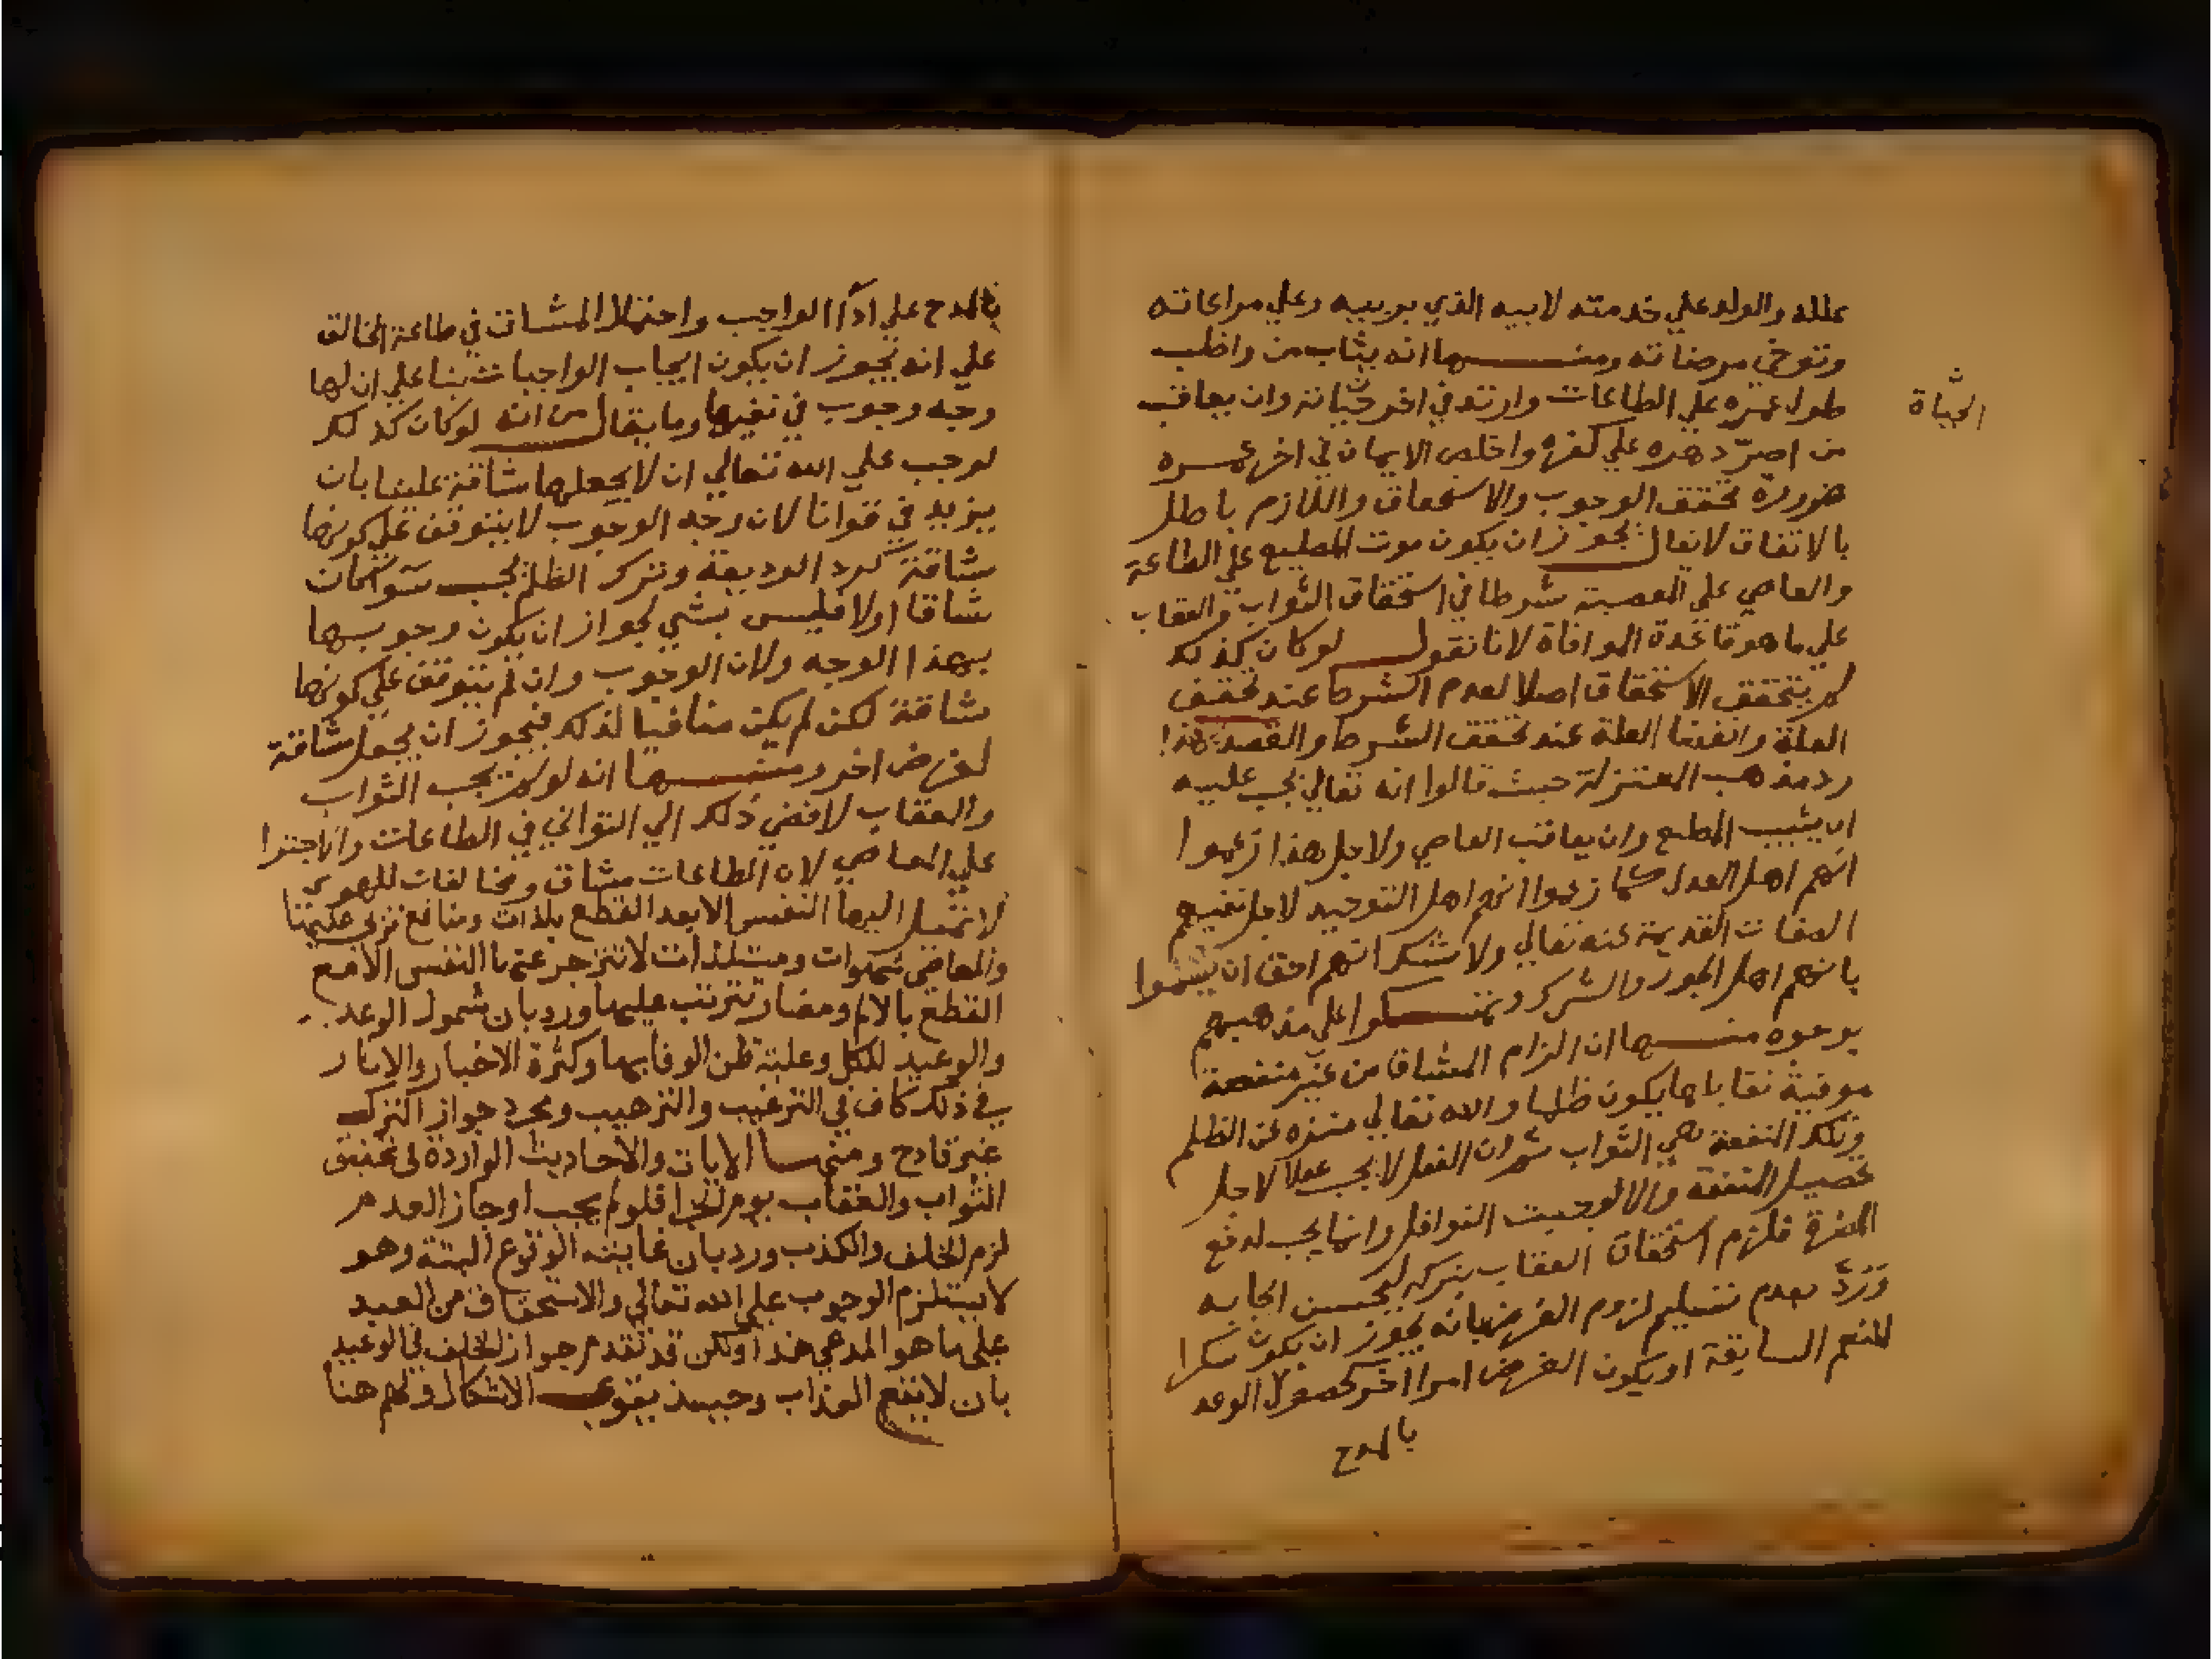 عمله والولد علي خدمته لابيه الذي يربيه وعلي مراعاته
وتوخي مرضاته ومنها انه يثاب من واظب
طول عمره علي الطاعات وارتد في اخر حياته وان يعاقب
الحياة
من اصر دهره علي كفره واخلص الايمان في اخر عمره
ضرورة تحقق الوجوب والاستحقاق واللازم باطل
بالاتفاق لا يقال يجوز ان يكون موت المطيع علي الطاعة
والعاصي علي المعصية شرطا في استحقاق الثواب والعقاب
علي ما هو قاعدة الموافاة لانا نقول لو كان كذلك
لم يتحقق الاستحقاق اصلا لعدم الشرط عند تحقق
العلة وانقضا العلة عند تحقق الشرط والقصد بهذا
رد مذهب المعتزلة حيث قالوا انه تعالي يجب عليه
ان يثيب المطيع وان يعاقب العاصي ولاجل هذا زعموا
انهم اهل العدل كما زعموا انهم اهل التوحيد لاجل نفيهم
الصفات القديمة عنه تعالي ولا شك انهم احق ان يسموا
بانهم اهل الجور والشرك وتمسكوا علي مذهبهم
بوجوه منها ان الزام المشاق من غير منفعة
موفية تقابلها يكون ظلما والله تعالي منزه عن الظلم
وتلك المنفعة هي الثواب ثم ان الفعل لا يجب عقلا لاجل
تحصيل المنفعة والا لوجبت النوافل وانما يجب لدفع
المضرة فلزم استحقاق العقاب بتركه ليحسن ايجابه
ورد بعدم تسليم لزوم الغرض بانه يجوز ان يكون شكرا
للنعم السابقة او يكون الغرض امرا اخر كحصول الوعد
بالمدح
بالمدح علي اداء الواجب واحتمال المشاق في طاعة الخالق
علي انه يجوز ان يكون ايجاب الواجبات بنا علي ان لها
وجه وجوب في نفسها وما يقال من انه لو كان كذلك
لوجب علي الله تعالي ان لا يجعلها شاقة علينا بان
يزيد في قوانا لان وجه الوجوب لا يتوقف علي كونها
شاقة كرد الوديعة وترك الظلم يجب سوا كان
شاقا اولا فليس بشي لجواز ان يكون وجوبها
بهذا الوجه ولان الوجوب وان لم يتوقف علي كونها
شاقة لكن لم يكن منافيا لذلك فيجوز ان يجعل شاقة
لغرض اخر ومنها انه لو لم يجب الثواب
والعقاب لافضي ذلك الي التواني في الطاعات والاجترا
علي المعاصي لان الطاعات مشاق ومخالفات للهوي
لا تميل اليها النفس الا بعد القطع بلذات ومنافع تربي عليها
والمعاصي شهوات ومستلذات لا تنزجر عنها النفس الا مع
القطع بالام ومضار تترتب عليها ورد بان شمول الوعد
والوعيد للكل وغلبة ظن الوفا بهما وكثرة الاخبار والاثار
في ذلك كاف في الترغيب والترهيب ومجرد جواز الترك
غير قادح ومنها الايات والاحاديث الواردة في تحقيق
الثواب والعقاب يوم الجزا فلو لم يجب او جاز العدم
لزم الخلف والكذب ورد بان غايته الوقوع البتة وهو
لا يستلزم الوجوب علي الله تعالي والاستحقاق من العبد
علي ما هو المدعي هذا ولكن قد تقدم جواز الخلف في الوعيد
بان لا يقع العذاب وحينئذ يقوي الاشكال ولهم هنا